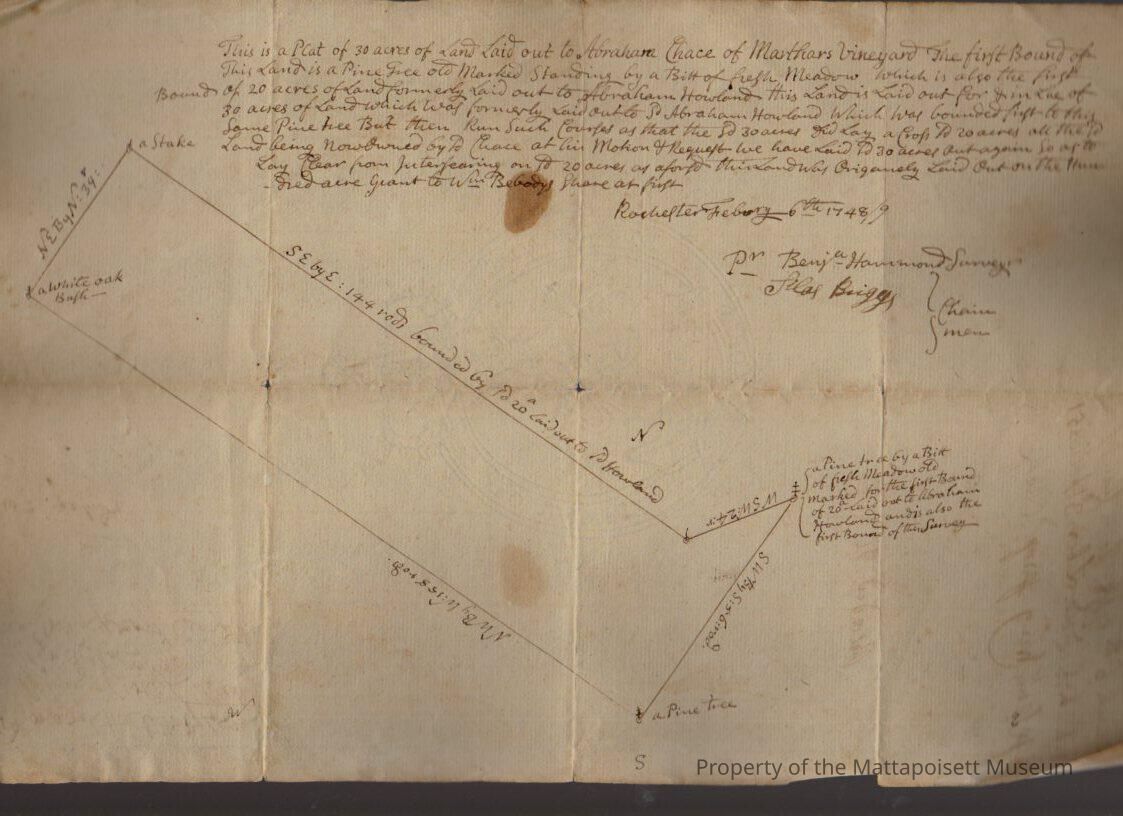 This is a Plat of 30 acres of Land Laid out to Abraham Chace of Marthars Vineyard The first Bound of
This Land is a Pine Tree old Marked Standing by a Bitt of fresh Meadow which is also the first
Bound of 20 acres of Land formerly Laid out to Abraham Howland this Land is Laid out for & in Lue of
30 acres of Land which was formerly Laid out to Sd Abraham Howland Which was bounded first to this
Same Pine tree But then Run Such Courses as that the Sd 30 acres Did Lay a Cross Sd 20 acres all the Sd
Land being Now Owned by Sd Chace at his Motion & Request we have Laid Sd 30 acres out again So as to
Lay Clear from Interfearing on Sd 20 acres as aforsd this Land Was Origenely Laid Out on the Hun
-Dred acre Grant to Wm Bebodys Share at first
Rochester Febury 6th 1748/9
Pr Benja Hammond Survey
Silas Briggs
Chain
men
a Stake
NE By N: 34:
a White oak
Bush
SE by E: 144 rods bounded by Sd 20a laid out to Sd Howland
N
WSW: 24: r
a Pine tree by a Bitt
of fresh Meadow old
marked for the first Bound
of 20a Laid out to Abraham
Howland and is also the
first Bound of this Survey
SW By S: 56: rod
NW By W: 158 rods
a Pine tree
W
S
Property of the Mattapoisett Museum